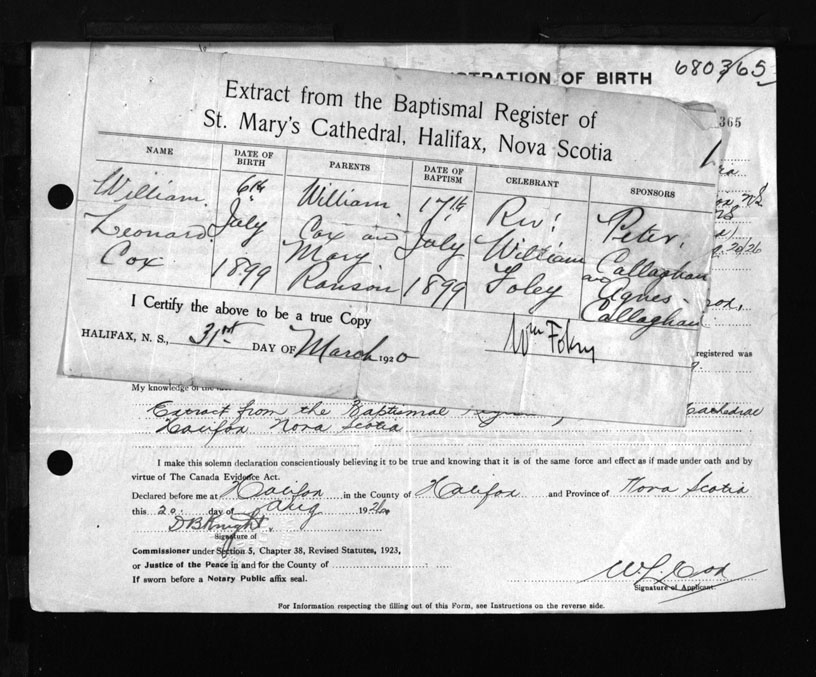 STRATION OF BIRTH 6803/65
365
Extract from the Baptismal Register of
St. Mary's Cathedral, Halifax, Nova Scotia
NAME DATE OF BIRTH PARENTS DATE OF BAPTISM CELEBRANT SPONSORS
William 6th William 17th Rev: Peter
Leonard July Cox and July William Callaghan
Cox 1899 Mary 1899 Foley and Agnes
Ronson Callaghan
I Certify the above to be a true Copy
HALIFAX, N. S., 31st DAY OF March 1920
Wm Foley
registered was
My knowledge of the
Extract from the Baptismal Cathedral
Halifax Nova Scotia
I make this solemn declaration conscientiously believing it to be true and knowing that it is of the same force and effect as if made under oath and by
virtue of The Canada Evidence Act.
Declared before me at Halifax in the County of Halifax and Province of Nova Scotia
this 20 day of Aug 1926
D B Knight
Signature of
Commissioner under Section 5, Chapter 38, Revised Statutes, 1923,
or Justice of the Peace in and for the County of
If sworn before a Notary Public affix seal.
W. L. Cox
Signature of Applicant.
For Information respecting the filling out of this Form, see Instructions on the reverse side.